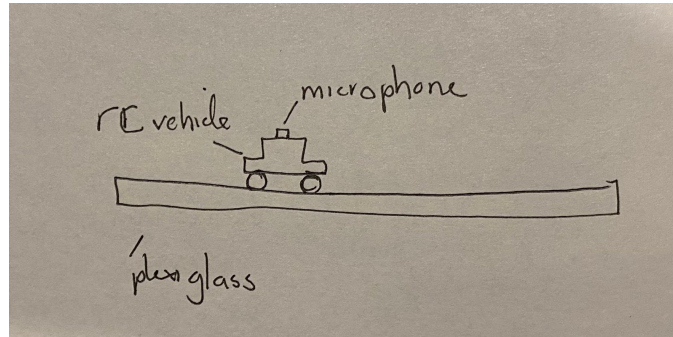 microphone
rC vehicle
plexiglass